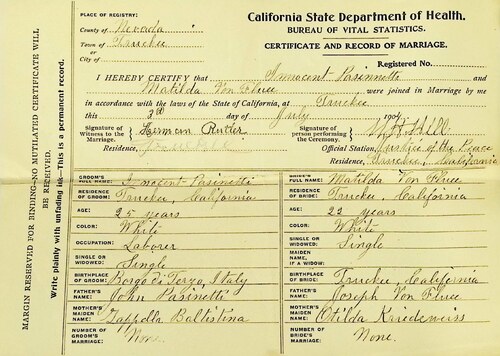 California State Department of Health.
BUREAU OF VITAL STATISTICS.
CERTIFICATE AND RECORD OF MARRIAGE.
PLACE OF REGISTRY:
County of Nevada
Town of Truckee
or
City of
Registered No.
I HEREBY CERTIFY that Innocent Pasinetti and
Matilda Von Flue were joined in Marriage by me
in accordance with the laws of the State of California, at Truckee
this 3rd day of July 1904
Signature of Witness to the Marriage Herman Rutler
Residence,
Signature of person performing the Ceremony. Hill
Official Station, Justice of the Peace
Residence, Truckee, California
MARGIN RESERVED FOR BINDING—NO MUTILATED CERTIFICATE WILL
BE RECEIVED.
Write plainly with unfading ink—This is a permanent record.
GROOM'S FULL NAME: Innocent Pasinetti
RESIDENCE OF GROOM: Truckee, California
AGE: 25 years
COLOR: White
OCCUPATION: Laborer
SINGLE OR WIDOWED: Single
BIRTHPLACE OF GROOM: Borgo di Terzo, Italy
FATHER'S NAME: John Pasinetti
MOTHER'S MAIDEN NAME: Zappella Baltistina
NUMBER OF GROOM'S MARRIAGE: None.
BRIDE'S FULL NAME: Matilda Von Flue
RESIDENCE OF BRIDE: Truckee, California
AGE: 22 years
COLOR: White
SINGLE OR WIDOWED: Single
MAIDEN NAME, IF A WIDOW:
BIRTHPLACE OF BRIDE: Truckee, California
FATHER'S NAME: Joseph Von Flue
MOTHER'S MAIDEN NAME: Otilda Kriedemiss
NUMBER OF BRIDE'S MARRIAGE: None.